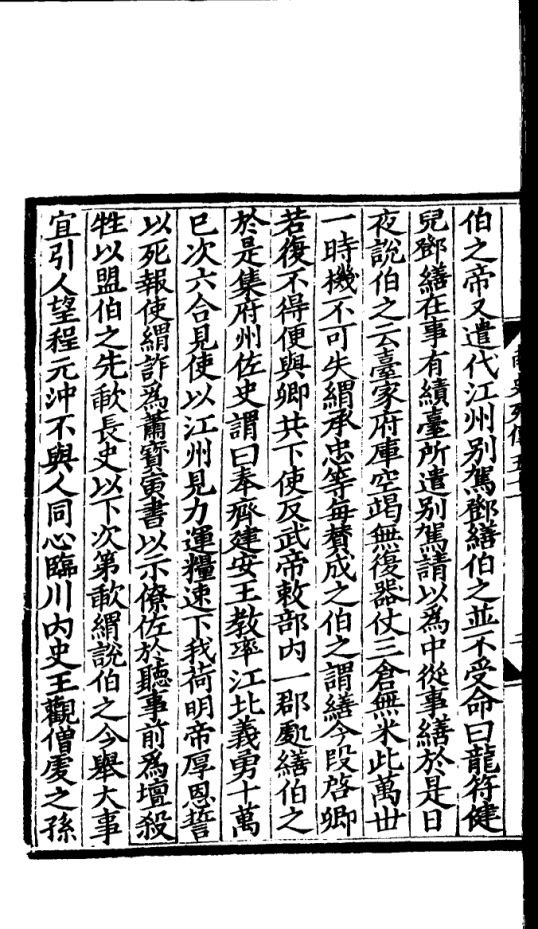 伯之帝又遣代江州别駕鄧繕伯之並不受命曰龍符健
兒鄧繕在事有績臺所遣别駕請以爲中從事繕於是日
夜說伯之云臺家府庫空竭無復器仗三倉無米此萬世
一時機不可失緭承忠等每賛成之伯之謂繕今段啓卿
若復不得便與卿共下使反武帝敕部内一郡處繕伯之
於是集府州佐史謂曰奉齊建安王教率江北義勇十萬
已次六合見使以江州見力運糧速下我荷明帝厚恩誓
以死報使緭詐爲蕭寶寅書以示僚佐於聽事前爲壇殺
牲以盟伯之先歃長史以下次第歃緭說伯之今舉大事
宜引人望程元沖不與人同心臨川内史王觀僧虔之孫